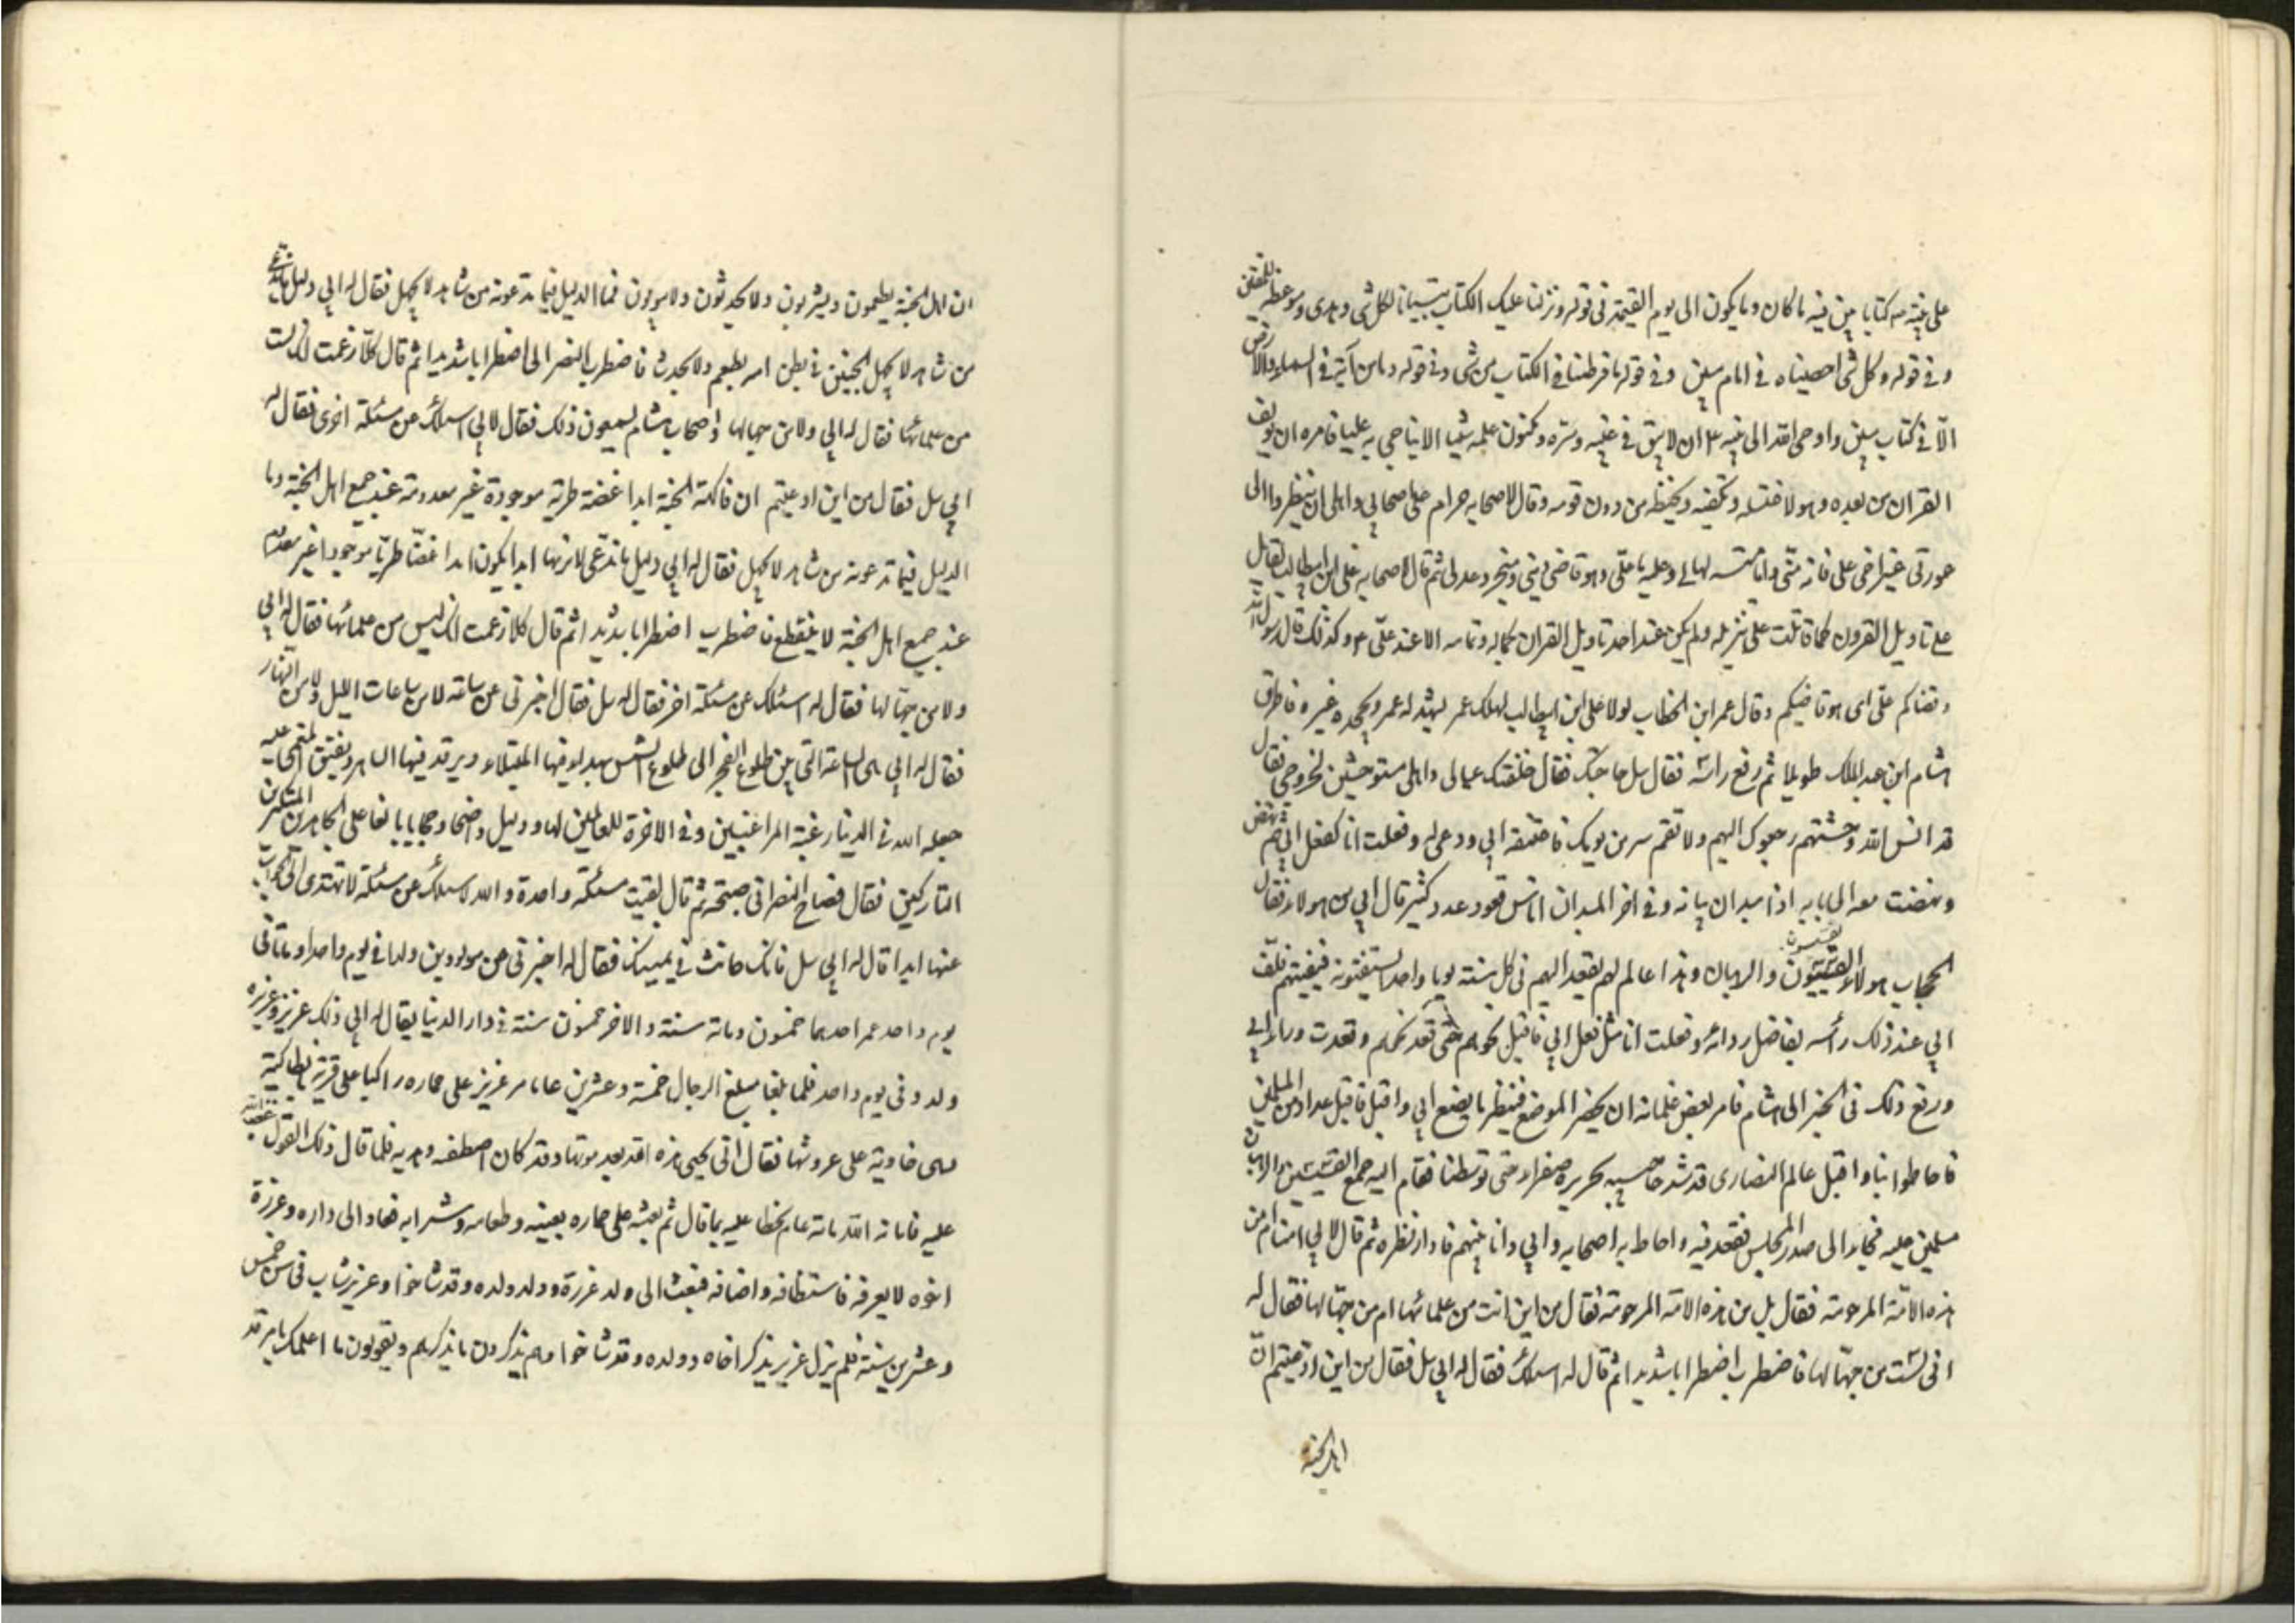 على نبيه ص كتابا بين فيه ما كان وما يكون الى يوم القيمة فى قوله ونزلنا عليك الكتاب تبيانا لكل شى وهدى وموعظة للمتقين
وفى قوله وكل شى احصيناه فى امام مبين وفى قوله ما فرطنا فى الكتاب من شى وفى قوله وما من آية فى السماء والارض
الّا فى كتاب مبين واوحى الله الى نبيه ع ان لا يبق فى غيبه وسرّه ومكنون علمه شيئا الا يناجى به عليا فامره ان يولف
القران من بعده وهو لا غسله وتكفينه وتحنيطه من دون قومه وقال لاصحابه حرام على اصحابى واهلى ان ينظروا الى
عورتى غير اخى على فانه منّى وانا منه له مالى وعليه ما علّى وهو قاضى دينى ومنجز وعدى ثم قال لاصحابه على ابن ابيطالب يقاتل
على تاويل القرون كما قاتلت على تنزيله ولم يكن عند احد تاويل القران بكماله وتمامه الا عند علّى ع وكذلك قال رسول الله
وقضاكم علّى اى هو قاضيكم وقال عمر ابن الخطاب لولا على ابن ابيطالب لهلك عمر يشهد له عمر ويجحده غيره فاطرق
هشام ابن عبد الملك طويلا ثم رفع راسه فقال سل حاجتك فقال خلفت عيالى واهلى مستوحشين لخروجى فقال
قد انس الله وحشتهم برجوعك اليهم ولا تقم سر من يومك فاعتنقه ابى ودعى له وفعلت انا كفعل ابى ثم نهض
ونهضت معه الى بابه اذا ميدان ببابه وفى اخر الميدان اناس قعود عدد كثير قال ابى من هولاء فقال
الحجاب هولاء القسيسون والرهبان وهذا عالم لهم يقعد اليهم فى كل سنة يوما واحدا يستفتونه فيفتيهم فلّف
ابى عند ذلك رأسه بفاضل ردائه وفعلت انا مثل فعل ابى فاقبل نحوهم حتى قعد نحوهم وقعدت وراء ابى
ورفع ذلك فى الخبر الى هشام فامر بعض غلمانه ان يحضر الموضع فينظر ما يصنع ابى واقبل فاقبل عداد من المسلمين
فاحاطوا بنا واقبل عالم النصارى قد شد حاجبيه بحريرة صفراء حتى توسطنا فقام اليه جميع القسيسين والرهبان
مسلمين عليه فجاء الى صدر المجلس فقعد فيه واحاط به اصحابه وابى وانا بينهم فادار نظره ثم قال لابى امنا ام من
هذه الامّة المرحومة فقال بل من هذه الامة المرحومة فقال من اين انت من علمائها ام من جهّالها فقال له
انى لست من جهّالها فاضطرب اضطرابا شديدا ثم قال له اسئلك فقال له ابى سل فقال من اين ادعيتم انّ
اهل الجنة
ان اهل الجنة يطعمون ويشربون ولا يحدثون ولا يبولون فما الدليل فيما تدعونه من شاهد لا يجهل فقال له ابى دليل ما ندعى
من شاهد لا يجهل الجنين فى بطن امه يطعم ولا يحدث فاضطرب النصرانى اضطرابا شديدا ثم قال كلّا زعمت انك لست
من علمائها فقال له ابى ولا من جهالها واصحاب هشام يسمعون ذلك فقال لابى اسئلك عن مسئلة اخرى فقال له
ابى سل فقال من اين ادعيتم ان فاكهة الجنة ابدا غضة طرية موجودة غير معدومة عند جميع اهل الجنة وما
الدليل فيما تدعونه من شاهد لا يجهل فقال له ابى دليل ما ندعى لانها ابدا يكون ابدا غضّا طريّا موجودا غير معدوم
عند جميع اهل الجنة لا ينقطع فاضطرب اضطرابا شديدا ثم قال كلا زعمت انك ليس من علمائها فقال له ابى
ولا من جهّالها فقال له اسئلك عن مسئلة اخر فقال له سل فقال اخبرنى عن ساعة لا من ساعات الليل ولا من النهار
فقال له ابى هى الساعة التى بين طلوع الفجر الى طلوع الشمس يهدأ فيها المبتلاء ويرقد فيها الساهر ويفيق المغمى عليه
جعله الله فى الدنيا رغبة المراغبين وفى الاخرة للعاملين لها ودليل واضحا وحجابا بالغا على الجاهدين المتكبرين
التاركين فقال فصاح النصرانى صيحة ثم قال بقيت مسئلة واحدة والله لاسئلك عن مسئلة لا تهتدى الى الجواب
عنها ابدا قال له ابى سل فانك حانث فى يمينك فقال له اخبرنى عن مولودين ولدا فى يوم واحد او ماتا فى
يوم واحد عمر احدهما خمسون ومائة سنة والاخر خمسون سنة فى دار الدنيا فقال له ابى ذلك عزير وعزيره
ولدو فى يوم واحد فلما بلغا مبلغ الرجال خمسة وعشرين عاما مر عزيز على حماره راكبا على قرية بانطاكية
هى خاوية على عروشها فقال انّى يحيى هذه الله بعد موتها وقد كان اصطفه وهديه فلما قال ذلك القول غضب الله
عليه فاماته الله مائة عام بخطا عليه بما قال ثم بعثه على حماره بعينه وطعامه وشرابه فعاد الى داره وعزرة
اخوه لا يعرفه فاستضافه واضافه فبعث الى ولد عزرة وولد ولده وقد شاخوا وعزيز شاب فى سن خمس
وعشرين سنة فلم يزل عزير يذكر اخاه وولده وقد شاخوا وهم يذكرون ما يذكرهم ويقولون ما اعلمك بامر قد